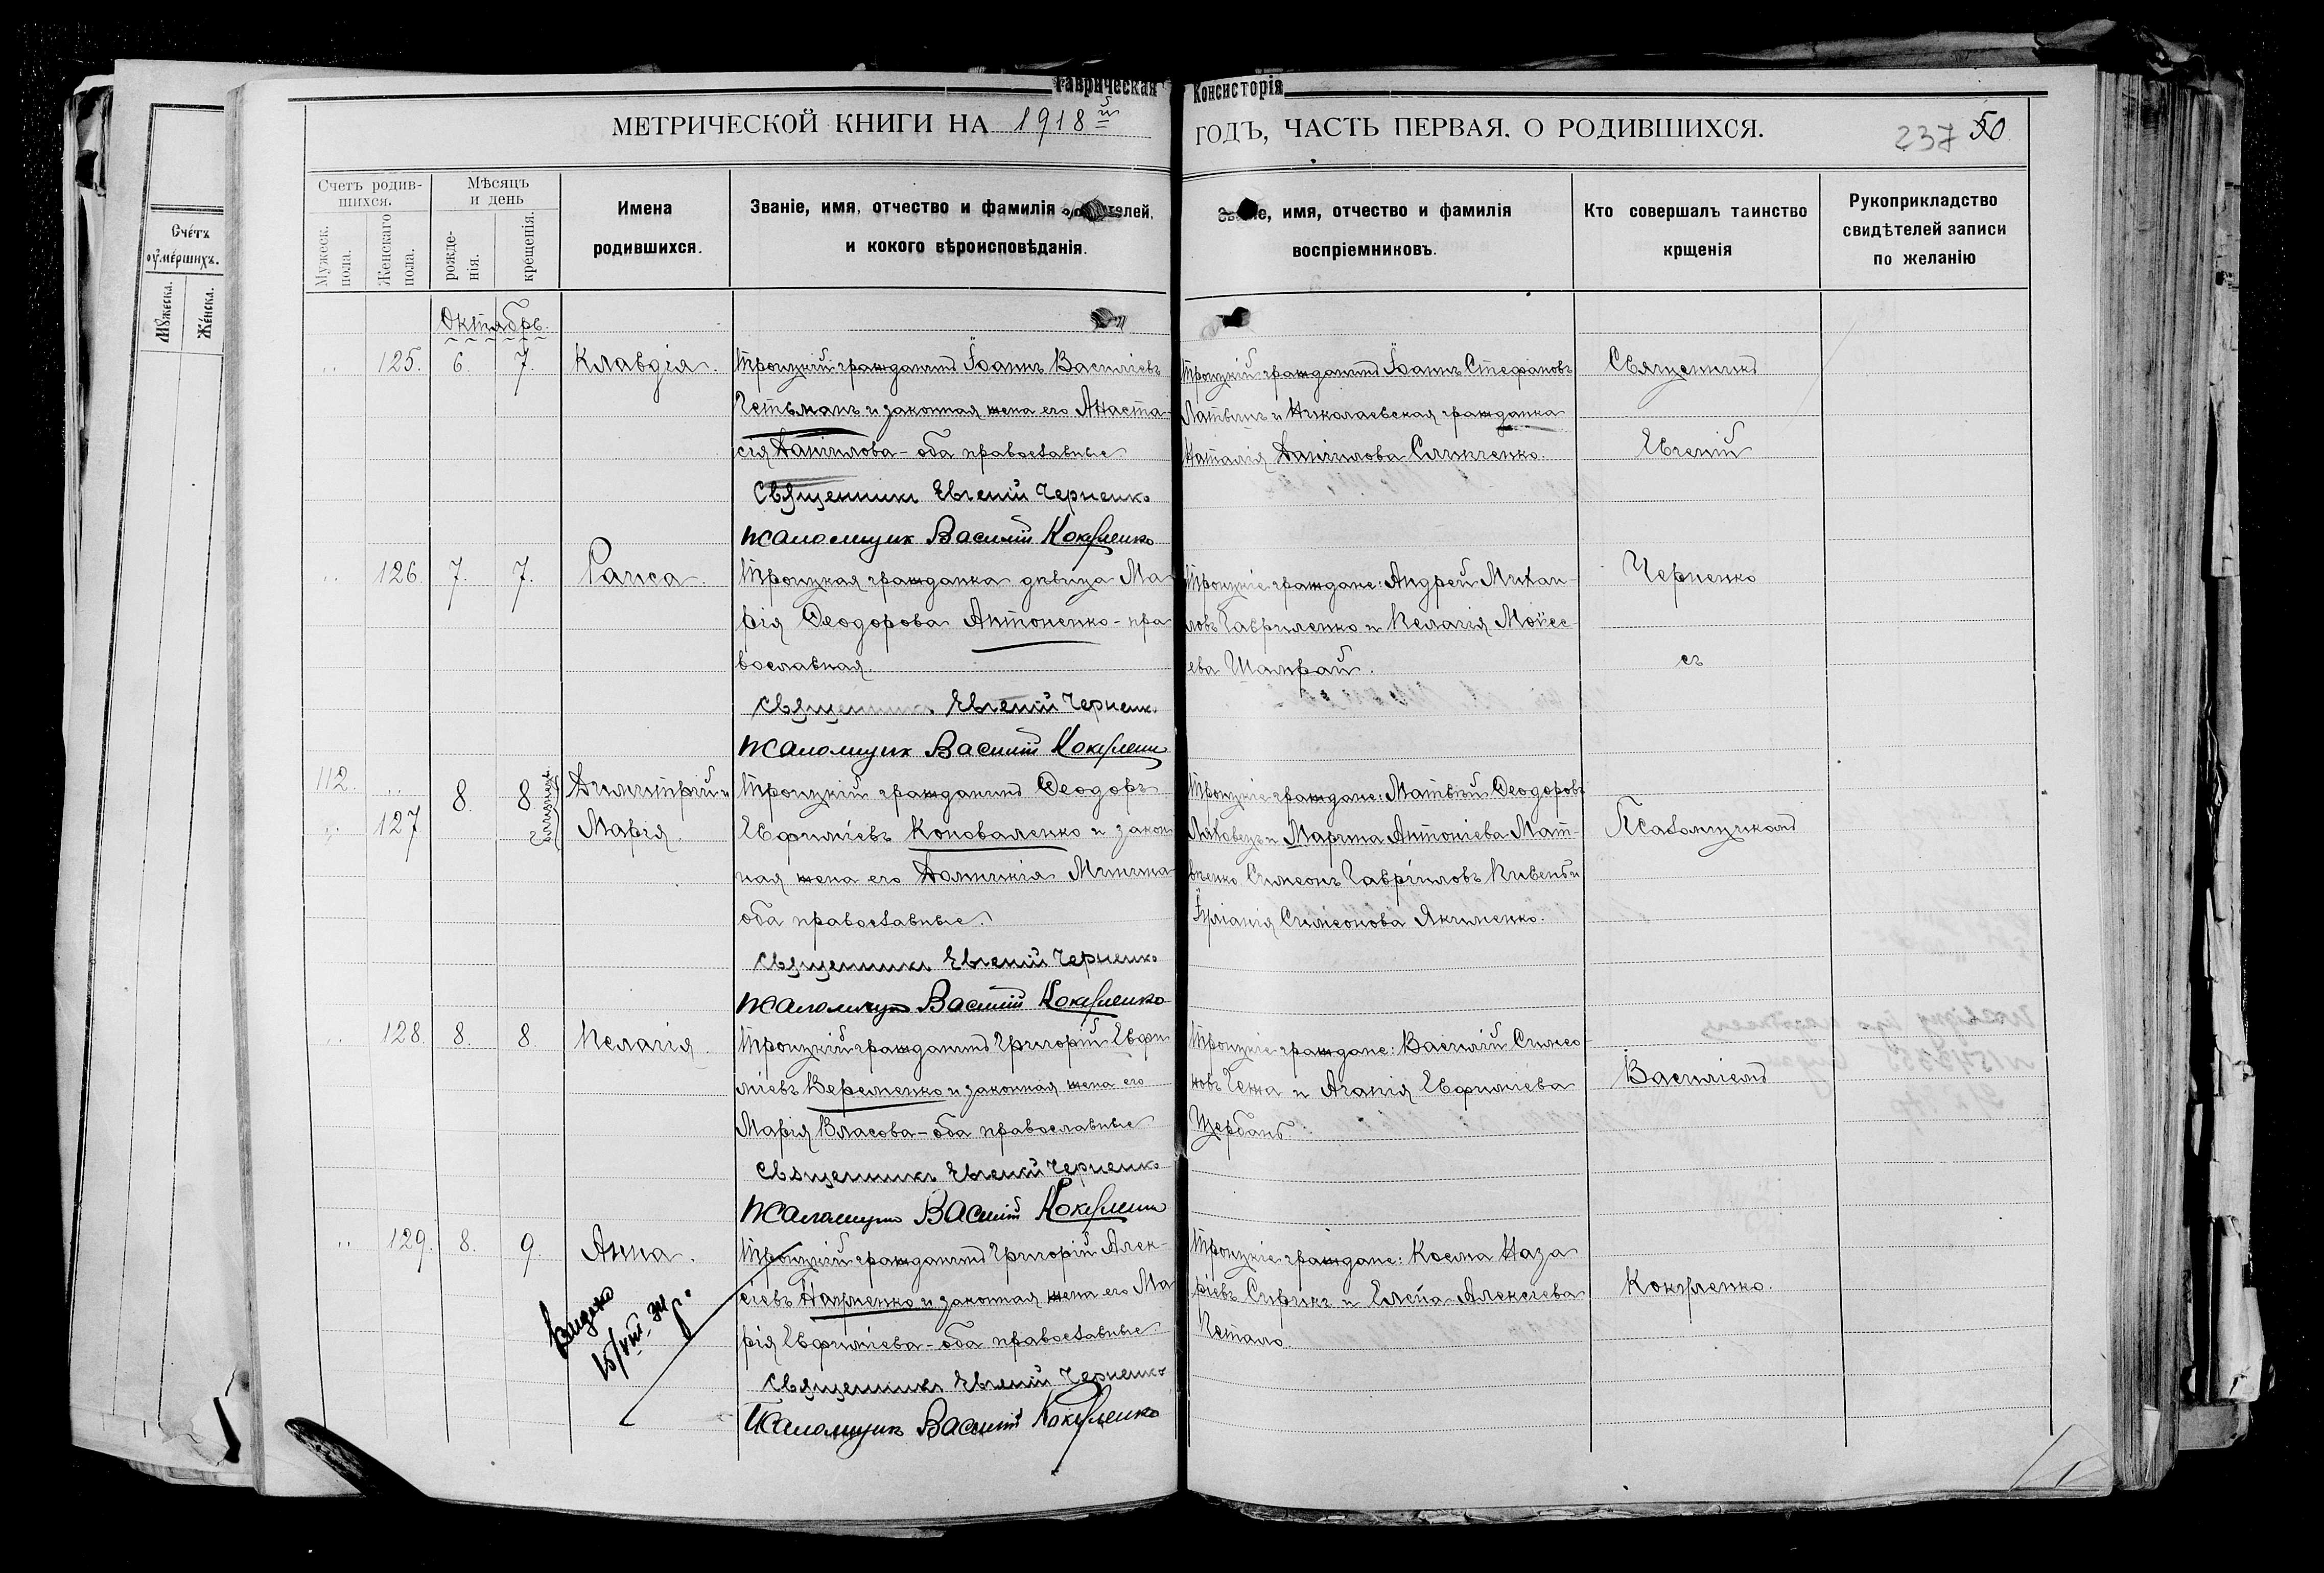 Таврическая Консисторія
МЕТРИЧЕСКОЙ КНИГИ НА 1918й ГОДЪ, ЧАСТЬ ПЕРВАЯ. О РОДИВШИХСЯ.
237 50
Счетъ умершихъ.
Мужеска.
Женска.
Счетъ родив-
шихся.
Мужеск. пола.
Женскаго пола.
Мѣсяцъ
и день
рожде-
нія.
крещенія.
Имена
родившихся.
Званіе, имя, отчество и фамилія родителей,
и кокого вѣроисповѣданія.
Званіе, имя, отчество и фамилія
воспріемниковъ.
Кто совершалъ таинство
крщенія
Рукоприкладство
свидѣтелей записи
по желанію
Октябрь.
125. 6. 7. Клавдія.
Троицкій гражданинъ Іоаннъ Василіевъ
Гетьманъ и законная жена его Анаста-
сія Даніилова - оба православные
Священникъ Евгеній Черненко
Псаломщик Василій Кокуленко
Троицкій гражданинъ Іоаннъ Стефановъ
и Николаевская гражданка
Наталія Даніилова
Священникъ
Евгеній
126. 7. 7. Раиса.
Троицкая гражданка дѣвица Ма-
рія Феодорова Антоненко - пра-
вославная.
Священникъ Евгеній Черненко
Псаломщик Василій Кокуленко
Троицкіе граждане: Андрей Михаи-
ловъ Гавриленко и Пелагія Моѵсе-
ева Шамрай.
Черненко
съ
112. 127 8. 8. близнецы Димитрій и
Марія.
Троицкій гражданинъ Феодоръ
Евфиміевъ Коноваленко и закон-
ная жена его Домникія Минина
оба православные.
Священникъ Евгеній Черненко
Псаломщик Василій Кокуленко
Троицкіе граждане: Матвѣй Феодоровъ
Ляховецъ и Марина Антоніева Мат-
вѣенко, Симеонъ Гавріиловъ Кивенъ и
Іуліанія Симеонова Якименко.
Псаломщикомъ
128. 8. 8. Пелагія.
Троицкій гражданинъ Григорій Евфи-
міевъ Веременко и законная жена его
Марія Власова - оба православные
Священникъ Евгеній Черненко
Псаломщик Василій Кокуленко
Троицкіе граждане: Василій Симео-
новъ и Агапія Евфиміева
Щербань.
Василіемъ
129. 8. 9. Анна.
Троицкій гражданинъ Григорій Алек-
сіевъ и законная жена его Ма-
рія Евфиміева - оба православные
Священникъ Евгеній Черненко
Псаломщик Василій Кокуленко
Троицкіе граждане: Косма Наза-
ріевъ и Елена Алексіева
Гетало.
Кокуленко.
Видано
15/VIII-34 р.